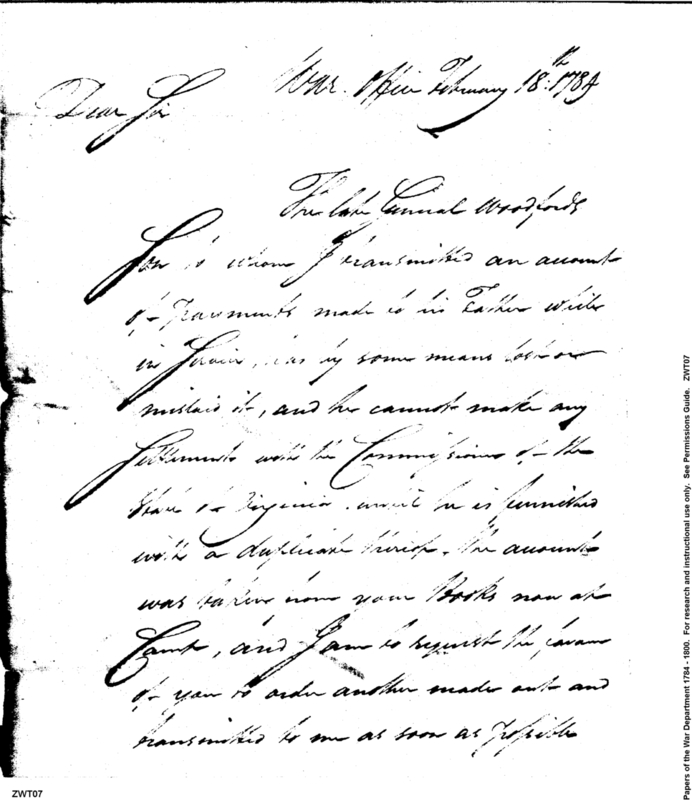 War Office February 18th 1784
Dear Sir
The late General Woodfords
Son to whom I transmitted an account
of Payments made to his Father while
in Service, has by some means lost or
mislaid it, and he cannot make any
Settlement with the Commissioner of the
State of Virginia until he is furnished
with a duplicate thereof. The account
was taken from your Books now at
Camp, and I am to request the favour
of you to order another made out and
transmitted to me as soon as possible
ZWT07
Papers of the War Department 1784 - 1800. For research and instructional use only. See Permissions Guide. ZWT07